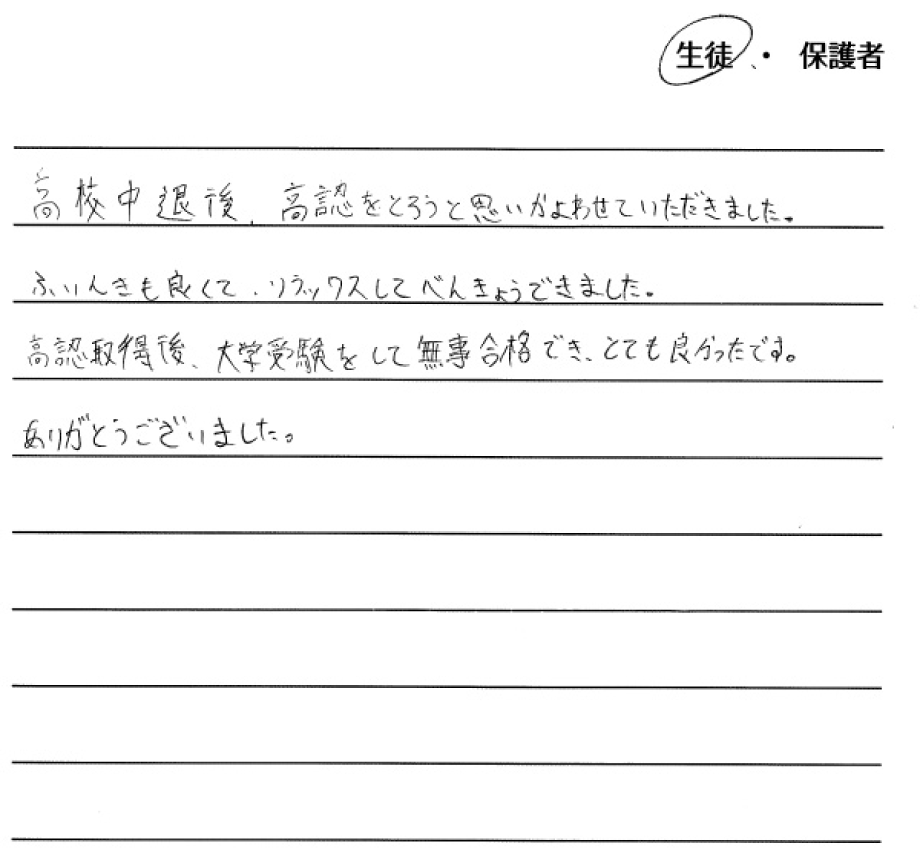 生徒 ・ 保護者
高校中退後、高認をとろうと思いかよわせていただきました。
ふいんきも良くて、リラックスしてべんきょうできました。
高認取得後、大学受験をして無事合格でき、とても良かったです。
ありがとうございました。